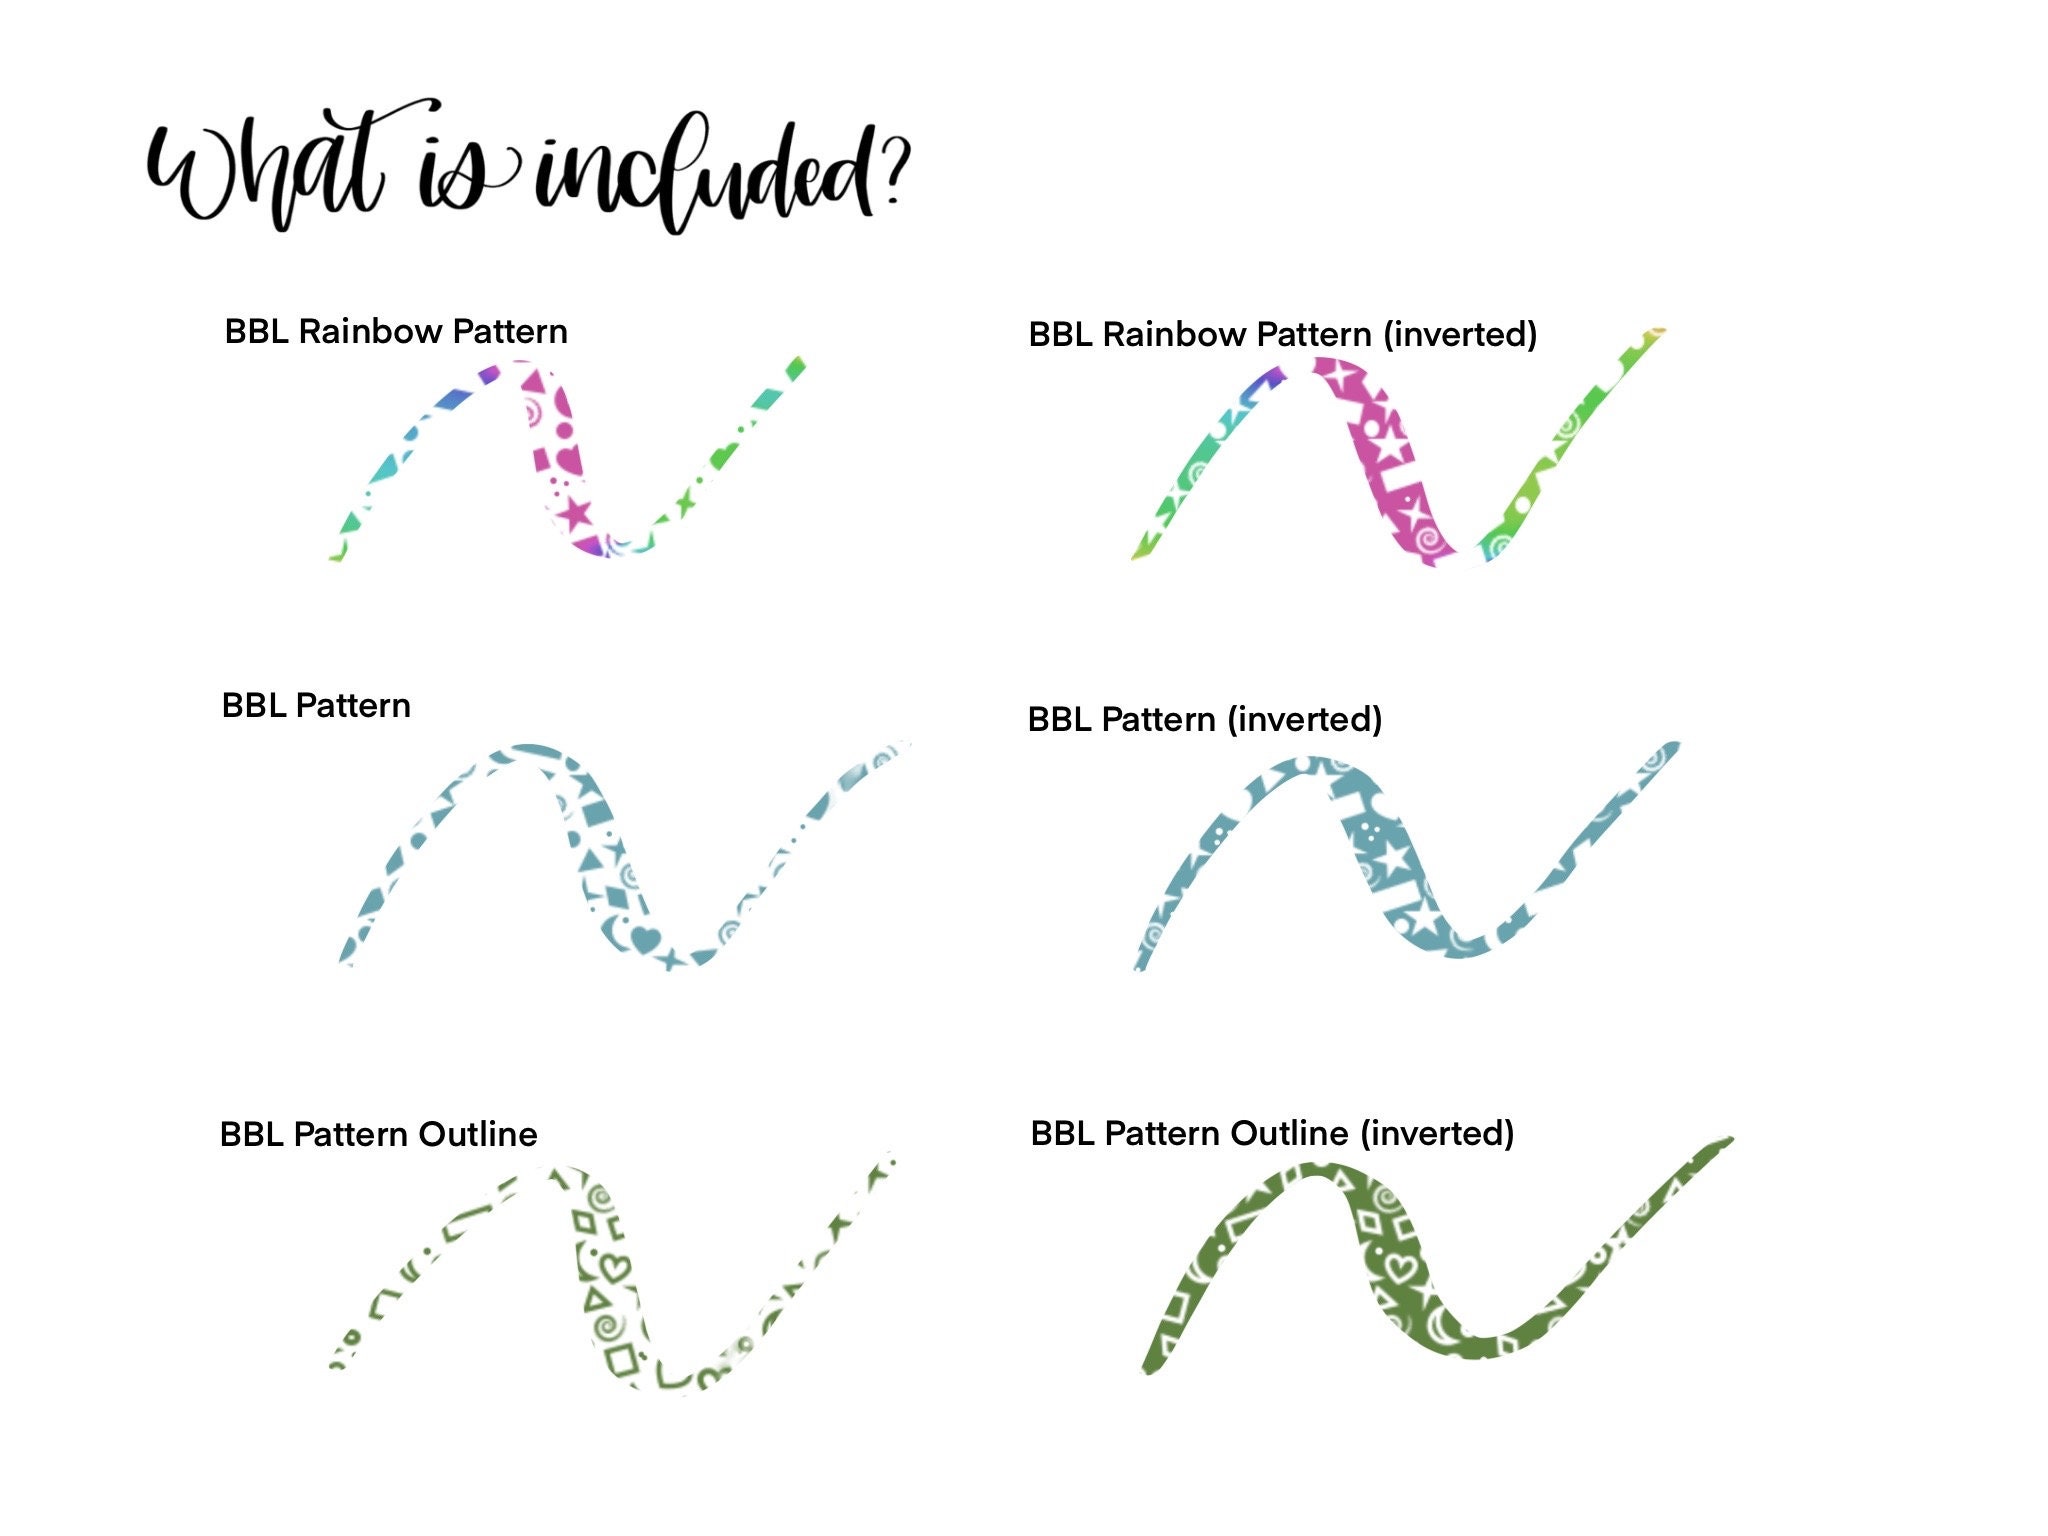 What is included?
BBL Rainbow Pattern
BBL Rainbow Pattern (inverted)
BBL Pattern
BBL Pattern (inverted)
BBL Pattern Outline
BBL Pattern Outline (inverted)